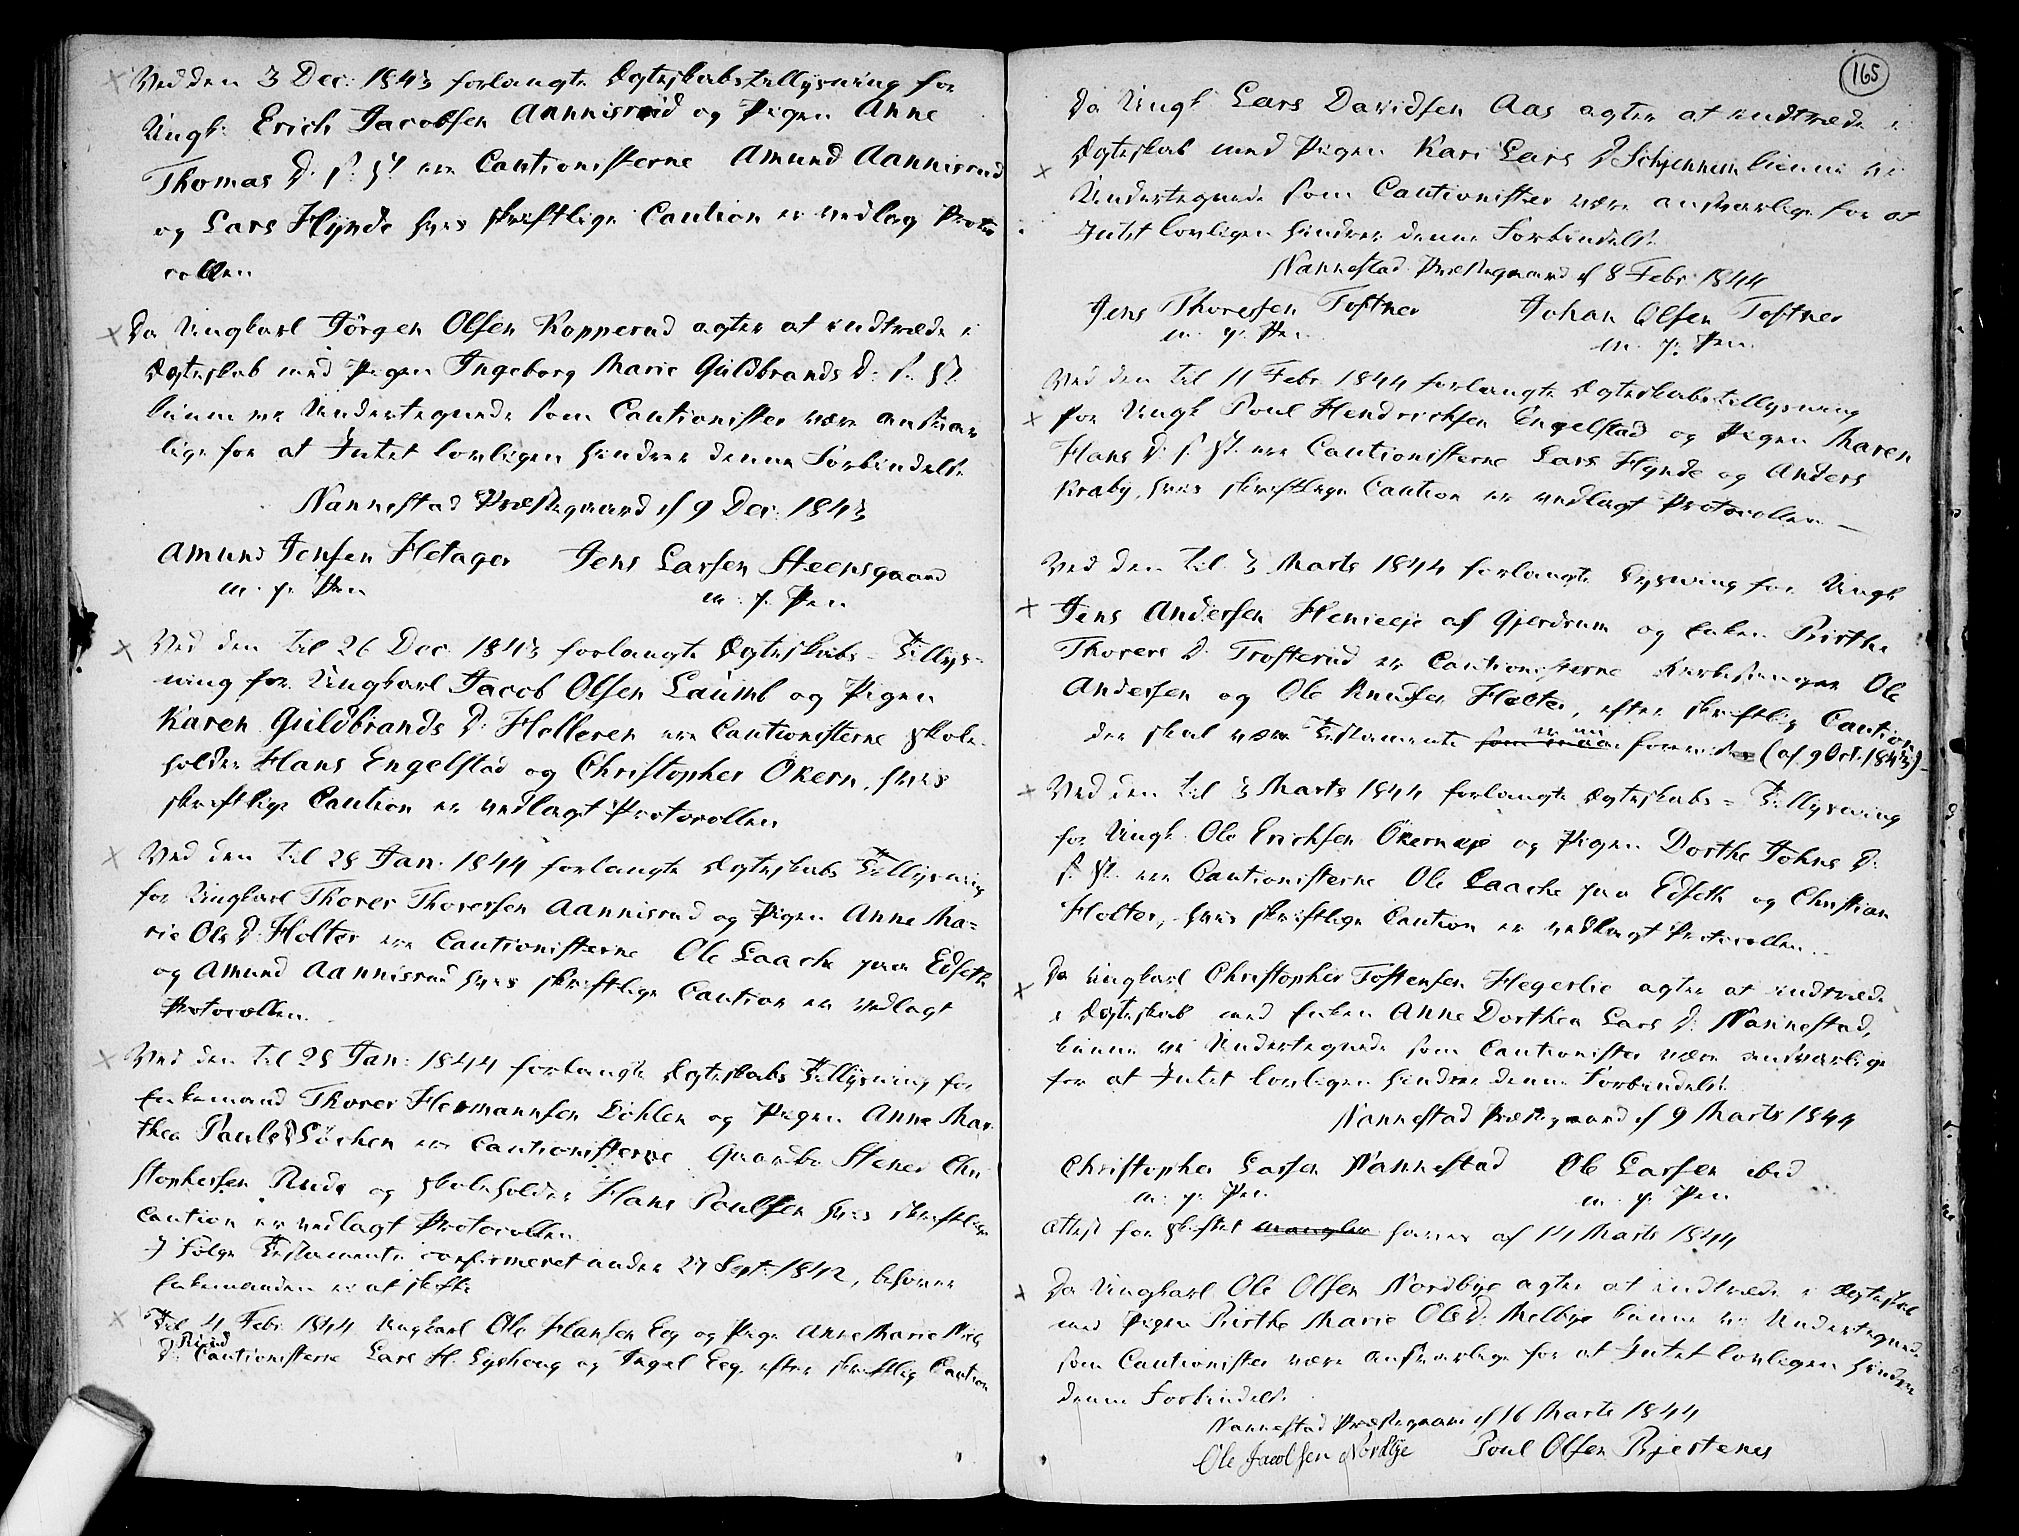 Ved den 3 Dec: 1843 forlangte Ægteskabs tillysning for
Ungk: Erich Jacobsen Aannisrud og Pigen Anne
Thomas D. s: St. ere Cautionisterne Amund Aannisrud
og Lars Hynde hvis skriftlige Caution er vedlag Proto
collen
Da Ungkarl Jörgen Olsen Kopperud agter at indtræde i
Ægteskab med Pigen Ingeborg Marie Guldbrands D: s. St.
kunne vi Undertegnede som Cautionister være ansvar
lige for at Intet lovligen hindrer denne Forbindelse
Nannestad Præstegaard d 9 Dec. 1843
Amund Jensen Hetager Jens Larsen Steensgaard
m. p. Pen m. p. Pen
Ved den til 26 Dec 1843 forlangte Ægteskabs- Tillys-
ning for Ungkarl Jacob Olsen Laumb og Pigen
Karen Guldbrands D: Helleren ere Cautionisterne Skole-
holder Hans Engelstad og Christopher Økern, hvis
skriftlige Caution er vedlagt Protocollen
Ved den til 28 Jan: 1844 forlangte Ægteskabs Tillysning
for Ungkarl Thorer Thorersen Aannisrud og Pigen Anne Ma-
rie Ols D. Holter ere Cautionisterne Ole Laache paa Edseth
og Amund Aannisrud hvis skriftlige Caution er vedlagt
Protocollen.
Ved den til 28 Jan: 1844 forlangte Ægteskabs Tillysning for
Enkemand Thorer Hermannsen Döhlen og Pigen Anne Mar
thea Pauls D Löchen ere Cautionisterne Gaardbr Stener Chri
stophersen Rude og Skoleholder Hans Poulsen hvis skriftlige
Caution er vedlagt Protocollen.
I Følge Testamente confirmeret under 27 Sept: 1842, behöver
Enkemanden ei at skifte
Til 4 Febr 1844 Ungkarl Ole Hansen Eeg og Pige Anne Marie Niels
D: Ruud Cautionisterne Lars H. Lyshoug og Ingel Eeg efter skriftlig Caution
165
Da Ungk Lars Davidsen Aas agter at indtræde i
Ægteskab med Pigen Kari Lars D Schjennum kunne vi
Undertegnede som Cautionister være ansvarlige for at
Intet lovligen hindrer denne Forbindelse
Nannestad Præstegaard d 8 Febr 1844
Jens Thoresen Toftner Johan Olsen Toftner
m. p. Pen. m. p. Pen.
Ved den til 11 Febr 1844 forlangte Ægteskabs tillysning
for Ungk Poul Hendrichsen Engelstad og Pigen Maren
Hans D. s. St. ere Cautionisterne Lars Hynde og Anders
Kraby, hvis skriftlige Caution er vedlagt Protocollen —
Ved den til 3 Marts 1844 forlangte Lysning for Ungk
Jens Andersen Henieeje af Gjerdrum og Enken Birthe
Thorers D. Trosterud er Cautionisterne Kirkesanger Ole
Andersen og Ole Knudsen Holter, efter skriftlig Caution
der skal være Testamente er nu forevist (af 9 Oct. 1843)
Ved den til 3 Marts 1844 forlangte Ægteskabs = Tillysning
for Ungk. Ole Erichsen Økerneje og Pigen Dorthe Johns D.
s. St. ere Cautionisterne Ole Laache paa Edseth og Christian
Holter, hvis skriftlige Caution er vedlagt Protocollen..
Da Ungkarl Christopher Toftensen Hegerlie agter at indtræde
i Ægteskab med Enken Anne Dorthea Lars D. Nannestad,
kunne vi Undertegnede som Cautionister være ansvarlige
for at Intet lovligen hindrer denne Forbindelse
Nannestad Præstegaard d 9 Marts 1844
Christopher Larsen Nannestad Ole Larsen ibid
m. p. Pen m. p. Pen
Attest for Skiftet mangler haves af 14 Marts 1844
Da Ungkarl Ole Olsen Nordbye agter at indtræde i Ægteskab
med Pigen Birthe Marie Ols D. Melbye kunne vi Undertegnede
som Cautionister være ansvarlige for at Intet lovligen hindrer
denne Forbindelse
Nannestad Præstegaard d 16 Marts 1844
Ole Jacobsen Nordbye Poul Olsen Bjertenes